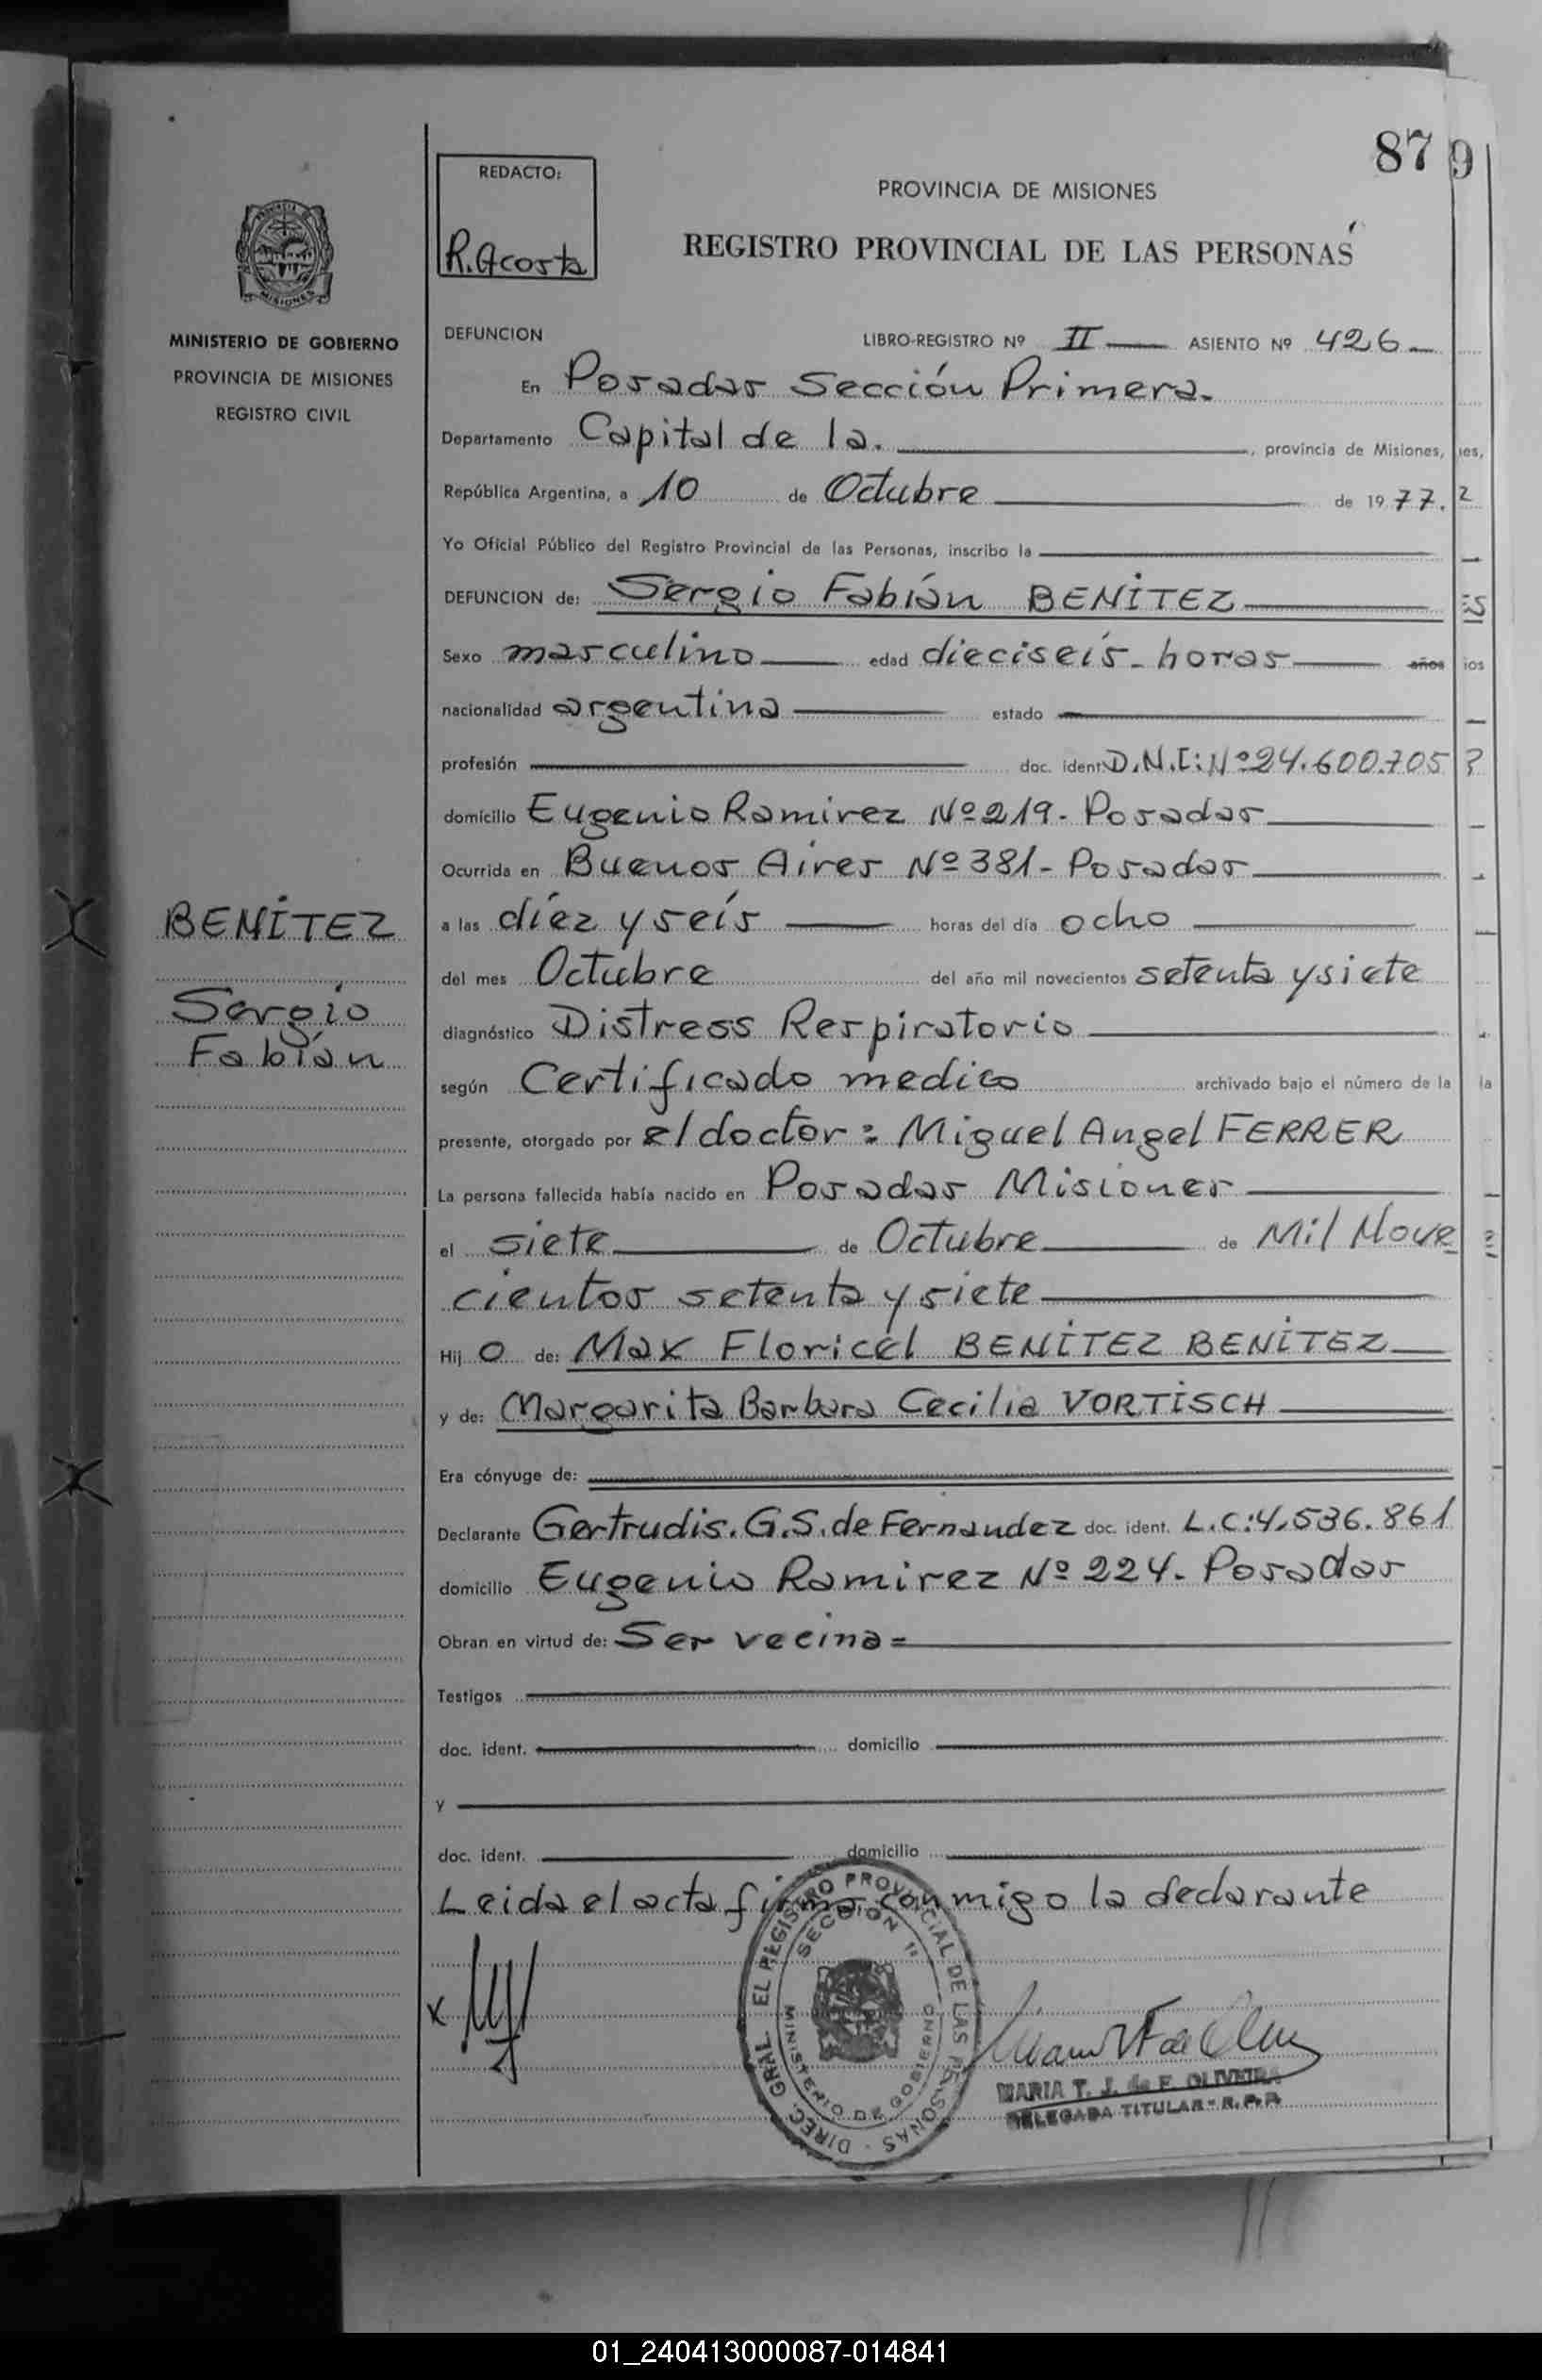 87
9
REDACTO:
R. Acosta
PROVINCIA DE MISIONES
REGISTRO PROVINCIAL DE LAS PERSONAS
MINISTERIO DE GOBIERNO
PROVINCIA DE MISIONES
REGISTRO CIVIL
DEFUNCION LIBRO-REGISTRO Nº II ASIENTO Nº 426
En Posadas Sección Primera.
Departamento Capital de la. , provincia de Misiones,
República Argentina, a 10 de Octubre de 1977.
Yo Oficial Público del Registro Provincial de las Personas, inscribo la
DEFUNCION de: Sergio Fabián BENITEZ
Sexo masculino edad dieciseís - horas años
nacionalidad argentina estado
profesión doc. ident. D.N.I: Nº 24.600.705
domicilio Eugenio Ramirez Nº 219 - Posadas
Ocurrida en Buenos Aires Nº 381 - Posadas
BENITEZ
a las díez y seís horas del día ocho
del mes Octubre del año mil novecientos setenta y siete
Sergio
Fabián
diagnóstico Distress Respiratorio
según Certificado medico archivado bajo el número de la
presente, otorgado por el doctor: Miguel Angel FERRER
La persona fallecida había nacido en Posadas Misiones
el siete de Octubre de Mil Nove
cientos setenta y siete
Hij o de: Max Floricél BENITEZ BENITEZ
y de: Margarita Barbara Cecilia VORTISCH
Era cónyuge de:
Declarante Gertrudis. G.S. de Fernandez doc. ident. L.C: 4.536.861
domicilio Eugenio Ramirez Nº 224 - Posadas
Obran en virtud de: Ser vecina =
Testigos
doc. ident. domicilio
y
doc. ident. domicilio
Leida el acta firma conmigo la declarante
DIREC. GRAL. EL REGISTRO PROVINCIAL DE LAS PERSONAS
SECCION 1ª
MINISTERIO DE GOBIERNO
MARIA T. J. de F. OLIVEIRA
DELEGADA TITULAR - R.P.P.
01_240413000087-014841